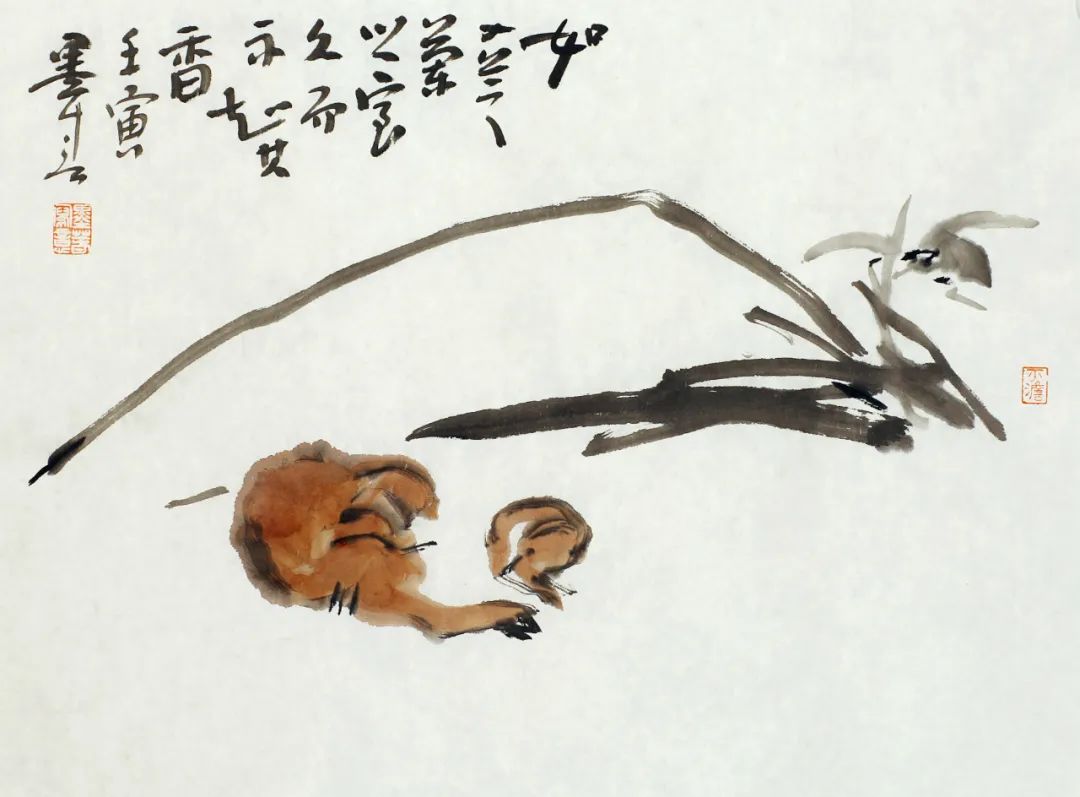 如
入芝
蘭
之室
久而
不其
香
壬寅
墨